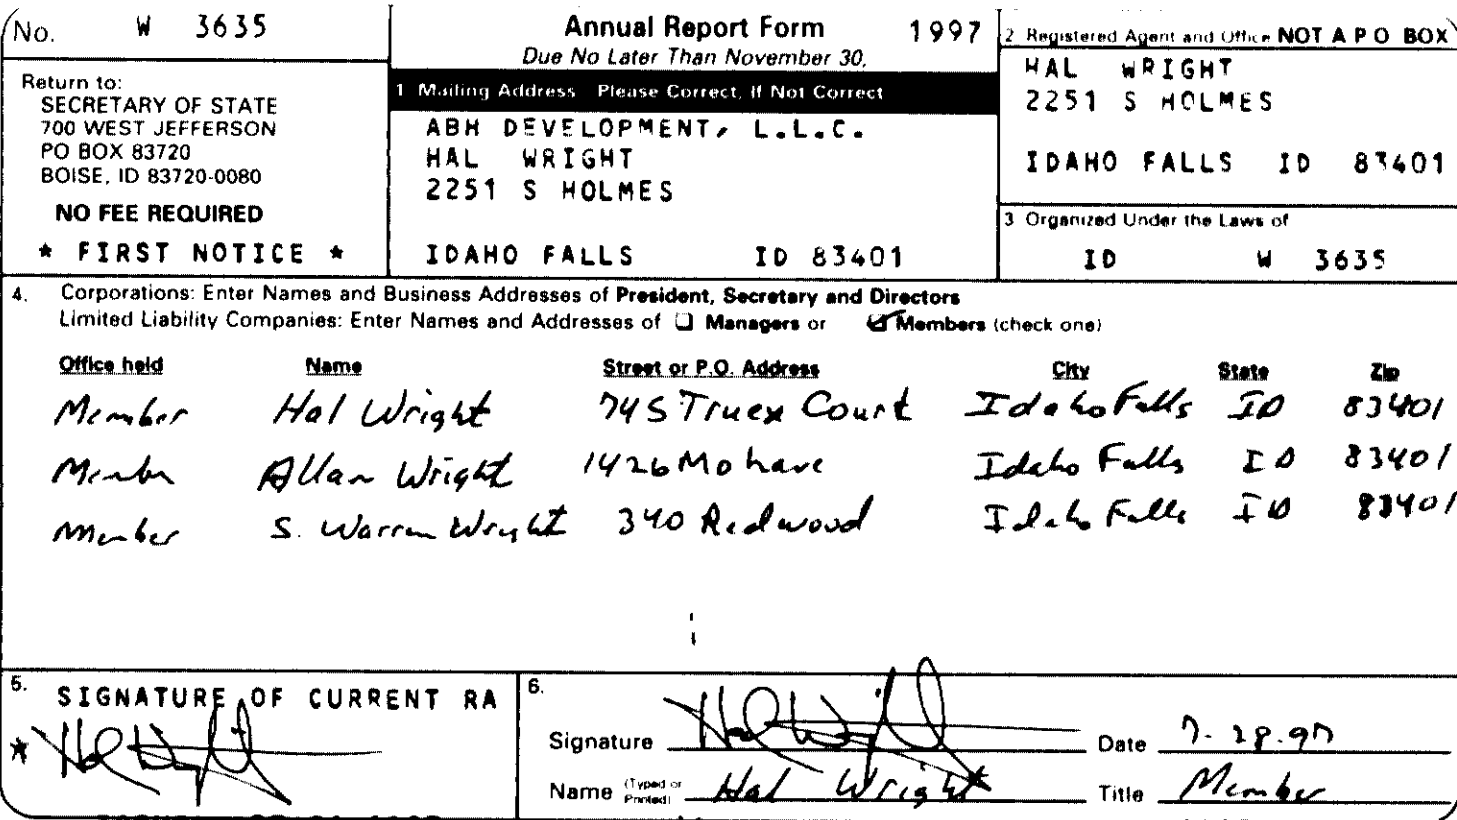 No. W 3635
Annual Report Form 1997
Due No Later Than November 30,
Return to:
SECRETARY OF STATE
700 WEST JEFFERSON
PO BOX 83720
BOISE, ID 83720-0080
NO FEE REQUIRED
* FIRST NOTICE *
1 Mailing Address Please Correct, If Not Correct
ABH DEVELOPMENT, L.L.C.
HAL WRIGHT
2251 S HOLMES
IDAHO FALLS ID 83401
2 Registered Agent and Office NOT A P O BOX
HAL WRIGHT
2251 S HOLMES
IDAHO FALLS ID 83401
3 Organized Under the Laws of
ID W 3635
4. Corporations: Enter Names and Business Addresses of President, Secretary and Directors
Limited Liability Companies: Enter Names and Addresses of Managers or Members (check one)
Office held Name Street or P.O. Address City State Zip
Member Hal Wright 745 Truex Court Idaho Falls ID 83401
Member Allan Wright 1426 Mohave Idaho Falls ID 83401
Member S. Warren Wright 340 Redwood Idaho Falls ID 83401
5. SIGNATURE OF CURRENT RA
* Hal Wright
6.
Signature Hal Wright Date 7-28-97
Name (Typed or Printed) Hal Wright Title Member